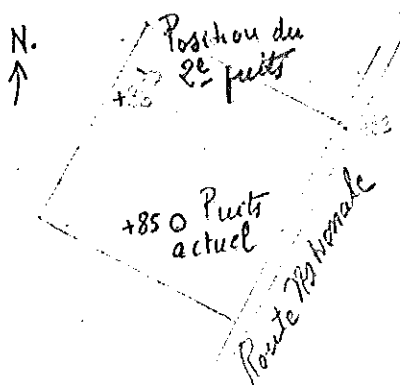 N.
Position du
2e puits
+85 Puits
actuel
Route Nationale